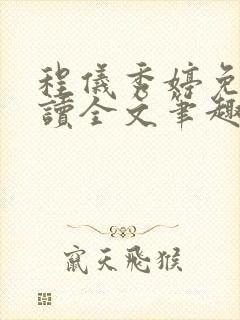 程儀秀婷免
讀全文筆趣
竄天飛猴